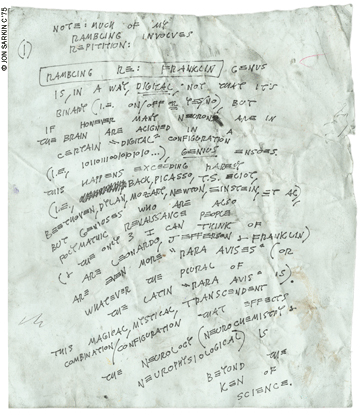 NOTE: MUCH OF MY
RAMBLING INVOLVES
REPITITION:
①
RAMBLING RE: FRANKLIN GENIUS
IS, IN A WAY, DIGITAL - NOT THAT IT'S
BINARY (I.E. ON/OFF OR YES/NO), BUT
IF HOWEVER MANY NEURONS ARE IN
THE BRAIN ARE ALIGNED IN A
CERTAIN "DIGITAL" CONFIGURATION
(I.E., ...), GENIUS ENSUES.
THIS HAPPENS EXCEEDING RARELY
(I.E., BACH, PICASSO, T.S. ELIOT,
BEETHOVEN, DYLAN, MOZART, NEWTON, EINSTEIN, ET AL),
BUT GENIUSES WHO ARE ALSO
POLYMATHIC RENAISSANCE PEOPLE
(& THE ONLY 3 I CAN THINK OF
ARE LEONARDO, JEFFERSON & FRANKLIN)
ARE EVEN MORE "RARA AVISES" (OR
WHATEVER THE PLURAL OF
THE LATIN "RARA AVIS" IS).
THIS MAGICAL, MYSTICAL, TRANSCENDENT
COMBINATION/CONFIGURATION THAT EFFECTS
THE NEUROLOGY (NEUROCHEMISTRY &
NEUROPHYSIOLOGICAL) IS
BEYOND THE
KEN OF
SCIENCE.
© JON SARKIN C'75